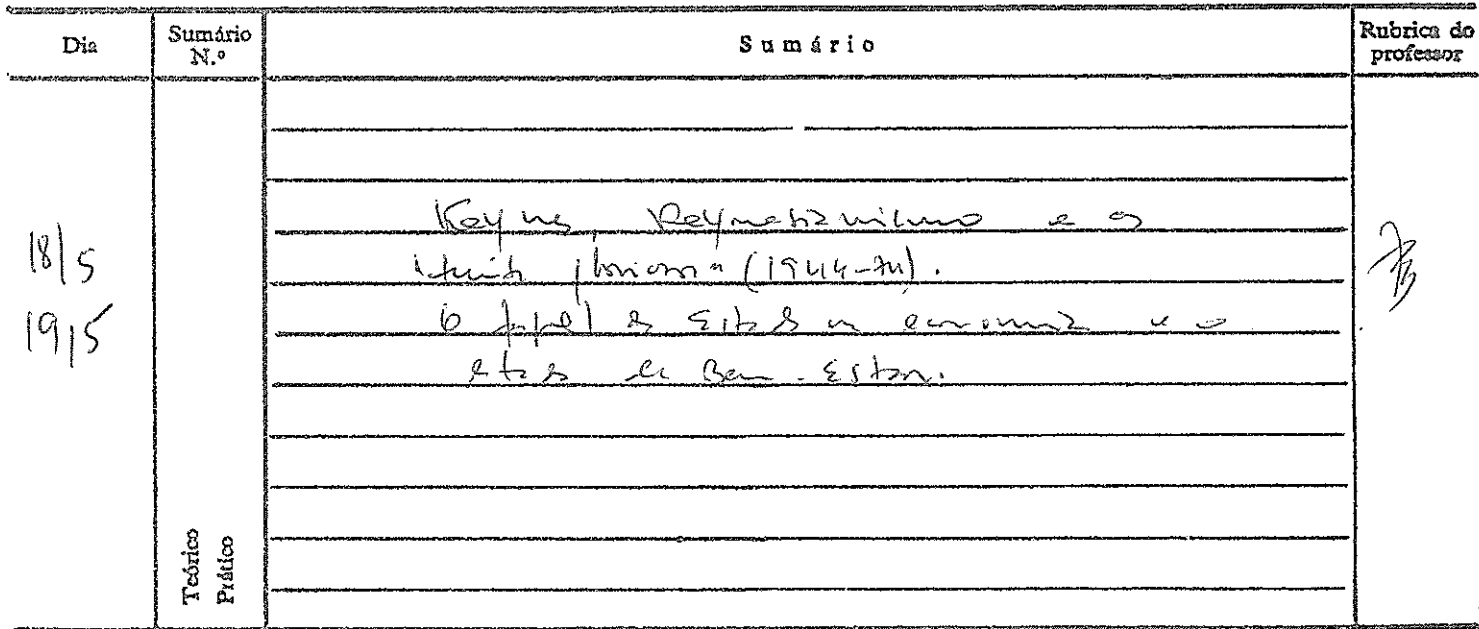 Dia
Sumário N.º
Sumário
Rubrica do professor
18/5
19/5
Keynes, Keynesianismo e os
"trinta gloriosos" (1944-74).
O papel do Estado na economia e o
estado de Bem-Estar.
Teórico
Prático